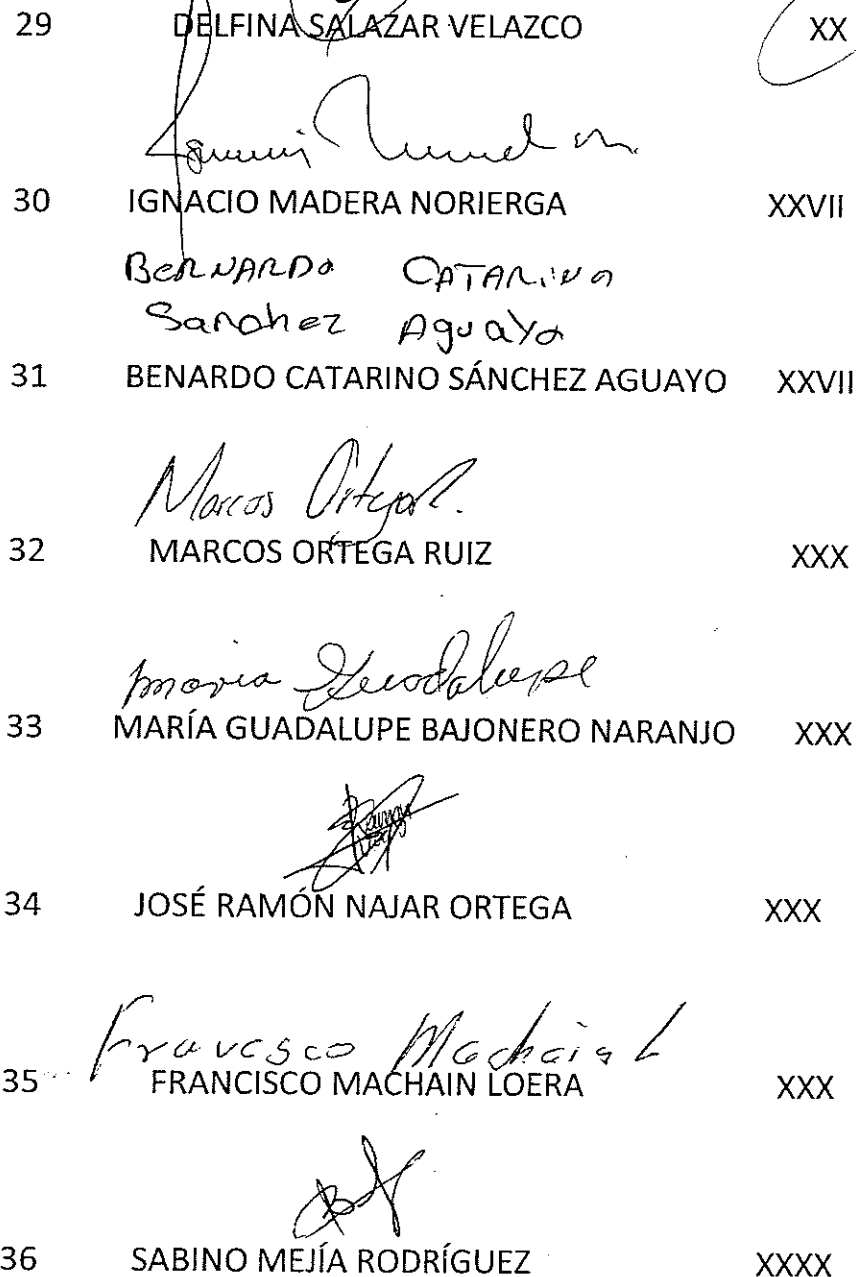 29 DELFINA SALAZAR VELAZCO XX
30 IGNACIO MADERA NORIERGA XXVII
BERNARDO CATARINO
Sanchez Aguayo
31 BENARDO CATARINO SÁNCHEZ AGUAYO XXVII
Marcos Ortega R.
32 MARCOS ORTEGA RUIZ XXX
maria Guadalupe
33 MARÍA GUADALUPE BAJONERO NARANJO XXX
34 JOSÉ RAMÓN NAJAR ORTEGA XXX
Francisco Machain L
35 FRANCISCO MACHAIN LOERA XXX
36 SABINO MEJÍA RODRÍGUEZ XXXX